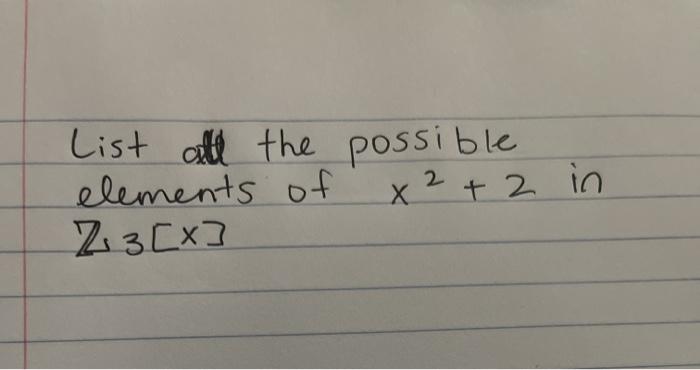 List all the possible
elements of x² + 2 in
ℤ₃[x]